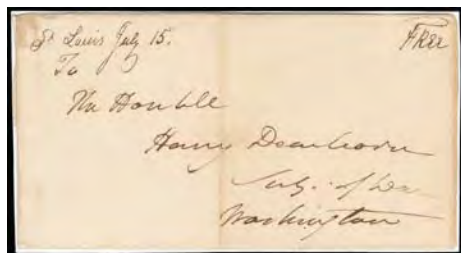 St Louis July 15.
FREE
To
The Honble
Henry Dearborn
Secy. of War
Washington